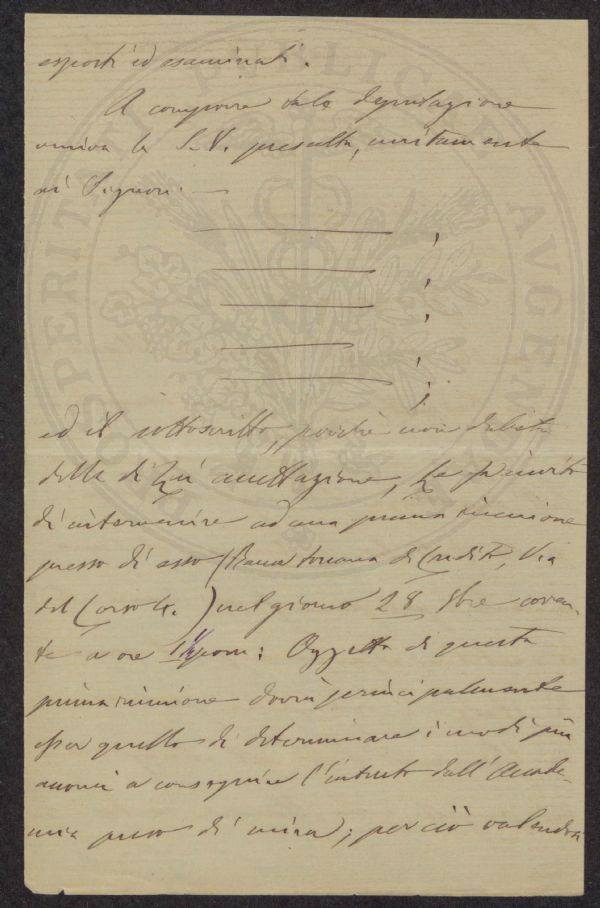 esposti ed esaminati.
A comporre tale deputazione
veniva la S. V. prescelta, unitamente
ai Signori. —
;
;
;
;
;
ed il sottoscritto, poichè non dubita
della di Lei accettazione, La invita
di intervenire ad una prima riunione
presso di esso (Banca toscana di Credito, Via
del Corso 4.) nel giorno 28 8bre corren-
te a ore 1½ pom: Oggetto di questa
prima riunione dovrà principalmente
esser quello di determinare i modi più
acconci a conseguire l'intento dall'Accade-
mia preso di mira; perciò valendosi
PROSPERITATI PUBLICAE AVGENDAE